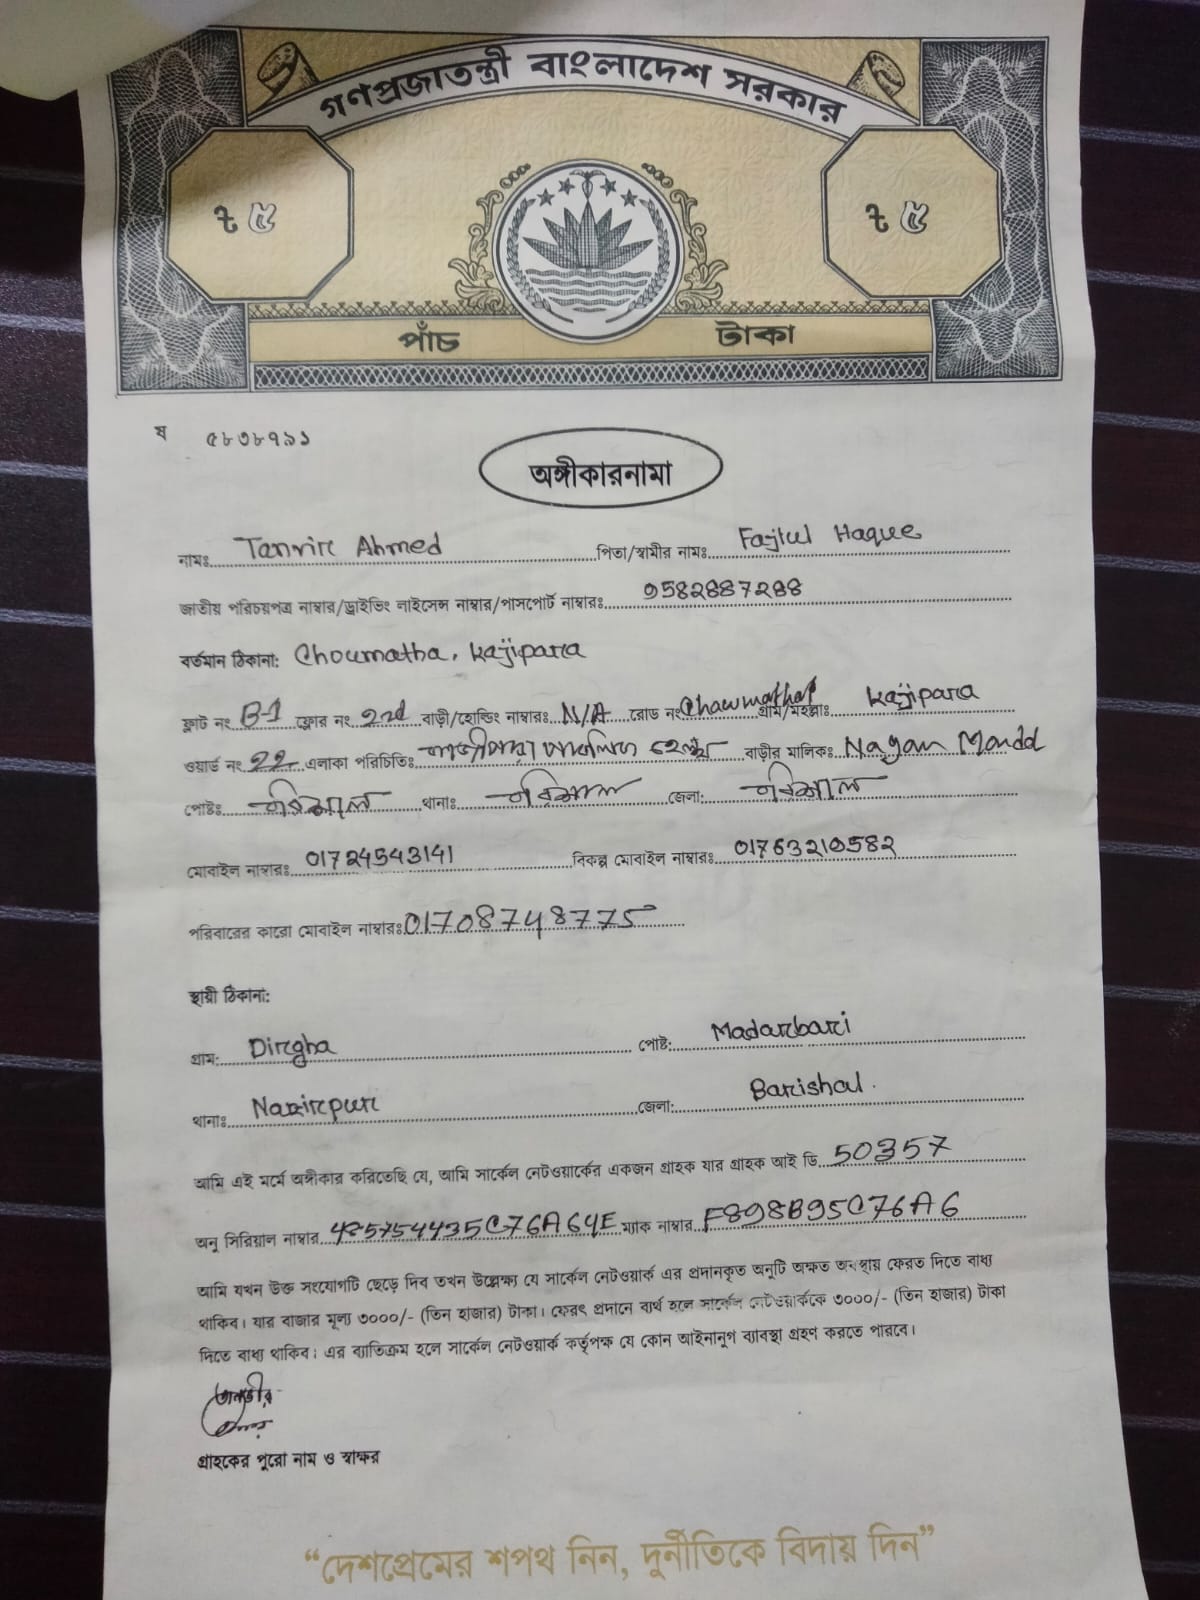 গণপ্রজাতন্ত্রী বাংলাদেশ সরকার
৳ ৫ ৳ ৫
পাঁচ টাকা
ষ ৫৮৩৮৭৯১
অঙ্গীকারনামা
নামঃ Tanvir Ahmed পিতা/স্বামীর নামঃ Fajlul Haque
জাতীয় পরিচয়পত্র নাম্বার/ড্রাইভিং লাইসেন্স নাম্বার/পাসপোর্ট নাম্বারঃ 9582887288
বর্তমান ঠিকানা: Choumatha, Kajipara
ফ্লাট নং B-1 ফ্লোর নং 2nd বাড়ী/হোল্ডিং নাম্বারঃ N/A রোড নং Chawmatha গ্রাম/মহল্লাঃ Kajipara
ওয়ার্ড নং 22 এলাকা পরিচিতিঃ বাড়ীর মালিকঃ Nayan
পোষ্টঃ বরিশাল থানাঃ বরিশাল জেলা: বরিশাল
মোবাইল নাম্বারঃ 01724543141 বিকল্প মোবাইল নাম্বারঃ 01763210582
পরিবারের কারো মোবাইল নাম্বারঃ 01708748775
স্থায়ী ঠিকানা:
গ্রাম: Dirgha পোষ্ট: Madarbari
থানাঃ Nazirpur জেলা: Barishal.
আমি এই মর্মে অঙ্গীকার করিতেছি যে, আমি সার্কেল নেটওয়ার্কের একজন গ্রাহক যার গ্রাহক আই ডি 50357
অনু সিরিয়াল নাম্বার 485754435C76A64E ম্যাক নাম্বার F898B95C76A6
আমি যখন উক্ত সংযোগটি ছেড়ে দিব তখন উল্লেক্ষ্য যে সার্কেল নেটওয়ার্ক এর প্রদানকৃত অনুটি অক্ষত অবস্থায় ফেরত দিতে বাধ্য
থাকিব। যার বাজার মূল্য ৩০০০/- (তিন হাজার) টাকা। ফেরৎ প্রদানে ব্যর্থ হলে সার্কেল নেটওয়ার্ককে ৩০০০/- (তিন হাজার) টাকা
দিতে বাধ্য থাকিব। এর ব্যাতিক্রম হলে সার্কেল নেটওয়ার্ক কর্তৃপক্ষ যে কোন আইনানুগ ব্যাবস্থা গ্রহণ করতে পারবে।
তানভীর
গ্রাহকের পুরো নাম ও স্বাক্ষর
“দেশপ্রেমের শপথ নিন, দুর্নীতিকে বিদায় দিন”